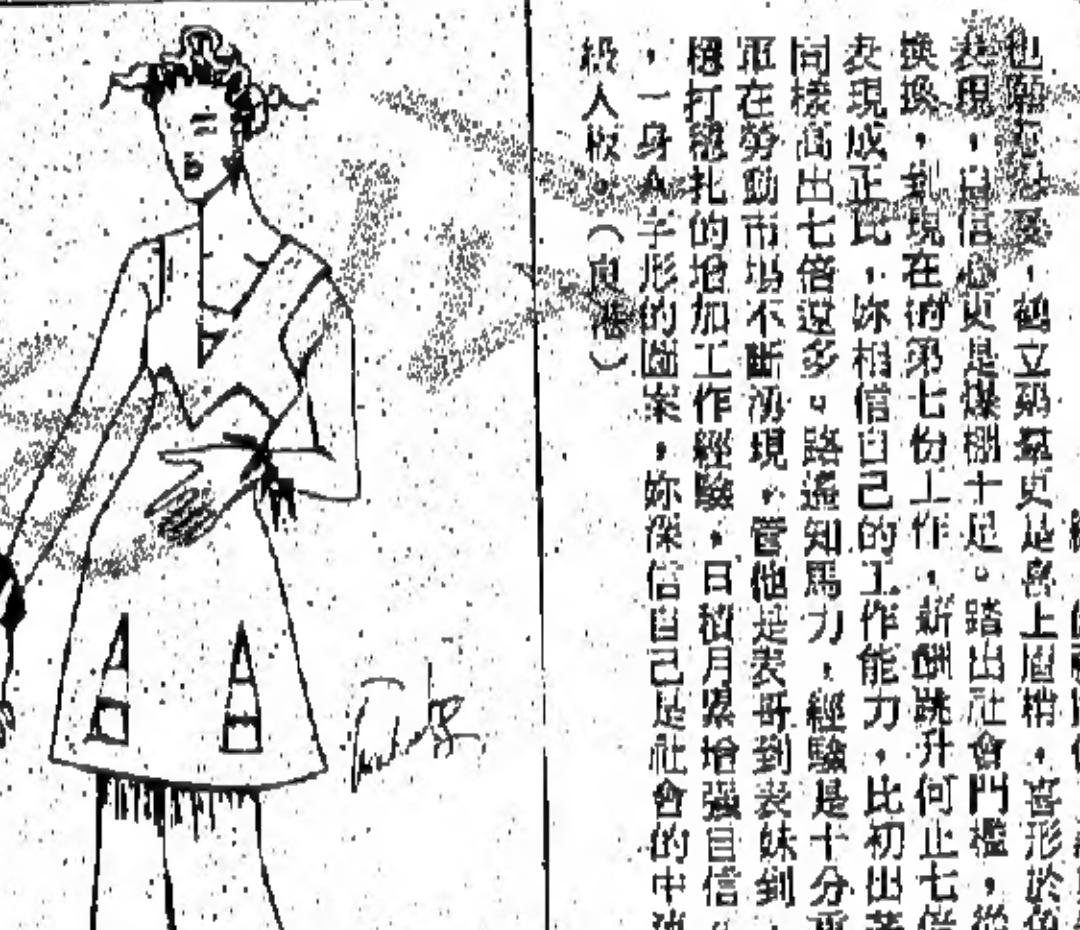 鶴立雞羣更是喜上眉梢，喜形於色
表現，自信心更是爆棚十足。踏出社會門檻，從
換換，到現在的第七份工作，薪酬跳升何止七倍
表現成正比，妳相信自己的工作能力，比初出茅
同樣高出七倍還多。路遙知馬力，經驗是十分重
軍在勞動市場不斷湧現，管他是表哥到表妹到
穩打穩扎的增加工作經驗，日積月累增強自信，
，一身A字形的圖案，妳深信自己是社會的中
人板。（良港）